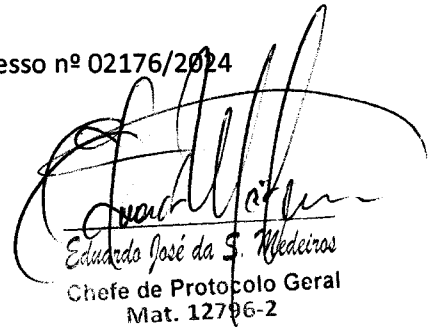 esso nº 02176/2024
Eduardo José da S. Medeiros
Chefe de Protocolo Geral
Mat. 12796-2